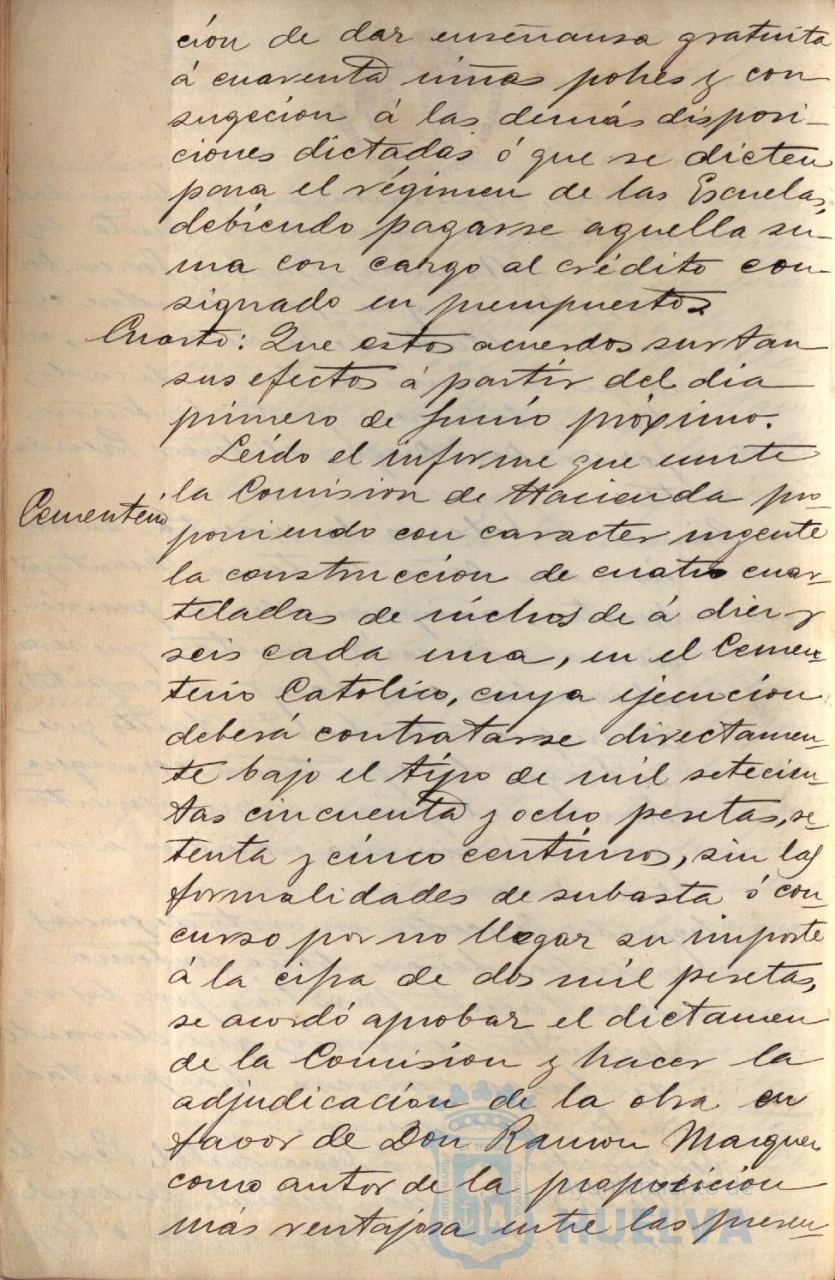 ción de dar enseñansa gratuita
á cuarenta niñas pobres y con
sugecion á las demás disposi-
ciones dictadas ó que se dicten
para el régimen de las Escuelas,
debiendo pagarse aquella su-
ma con cargo al crédito con-
signado en presupuestos.
Cuarto: Que estos acuerdos surtan
sus efectos á partir del dia
primero de Junio próximo.
Leido el informe que emite
Cementerio
la Comision de Hacienda pro-
poniendo con caracter urgente
la construccion de cuatro cuar-
teladas de nichos de á diez y
seis cada una, en el Cemen-
terio Catolico, cuya ejecucion
deberá contratarse directamen-
te bajo el tipo de mil setecien-
tas cincuenta y ocho pesetas, se-
tenta y cinco centimos, sin las
formalidades de subasta ó con-
curso por no llegar su importe
á la cifra de dos mil pesetas,
se acordó aprobar el dictamen
de la Comision y hacer la
adjudicación de la obra en
favor de Don Ramon Marquez
como autor de la proposición
más ventajosa entre las presen-
HUELVA